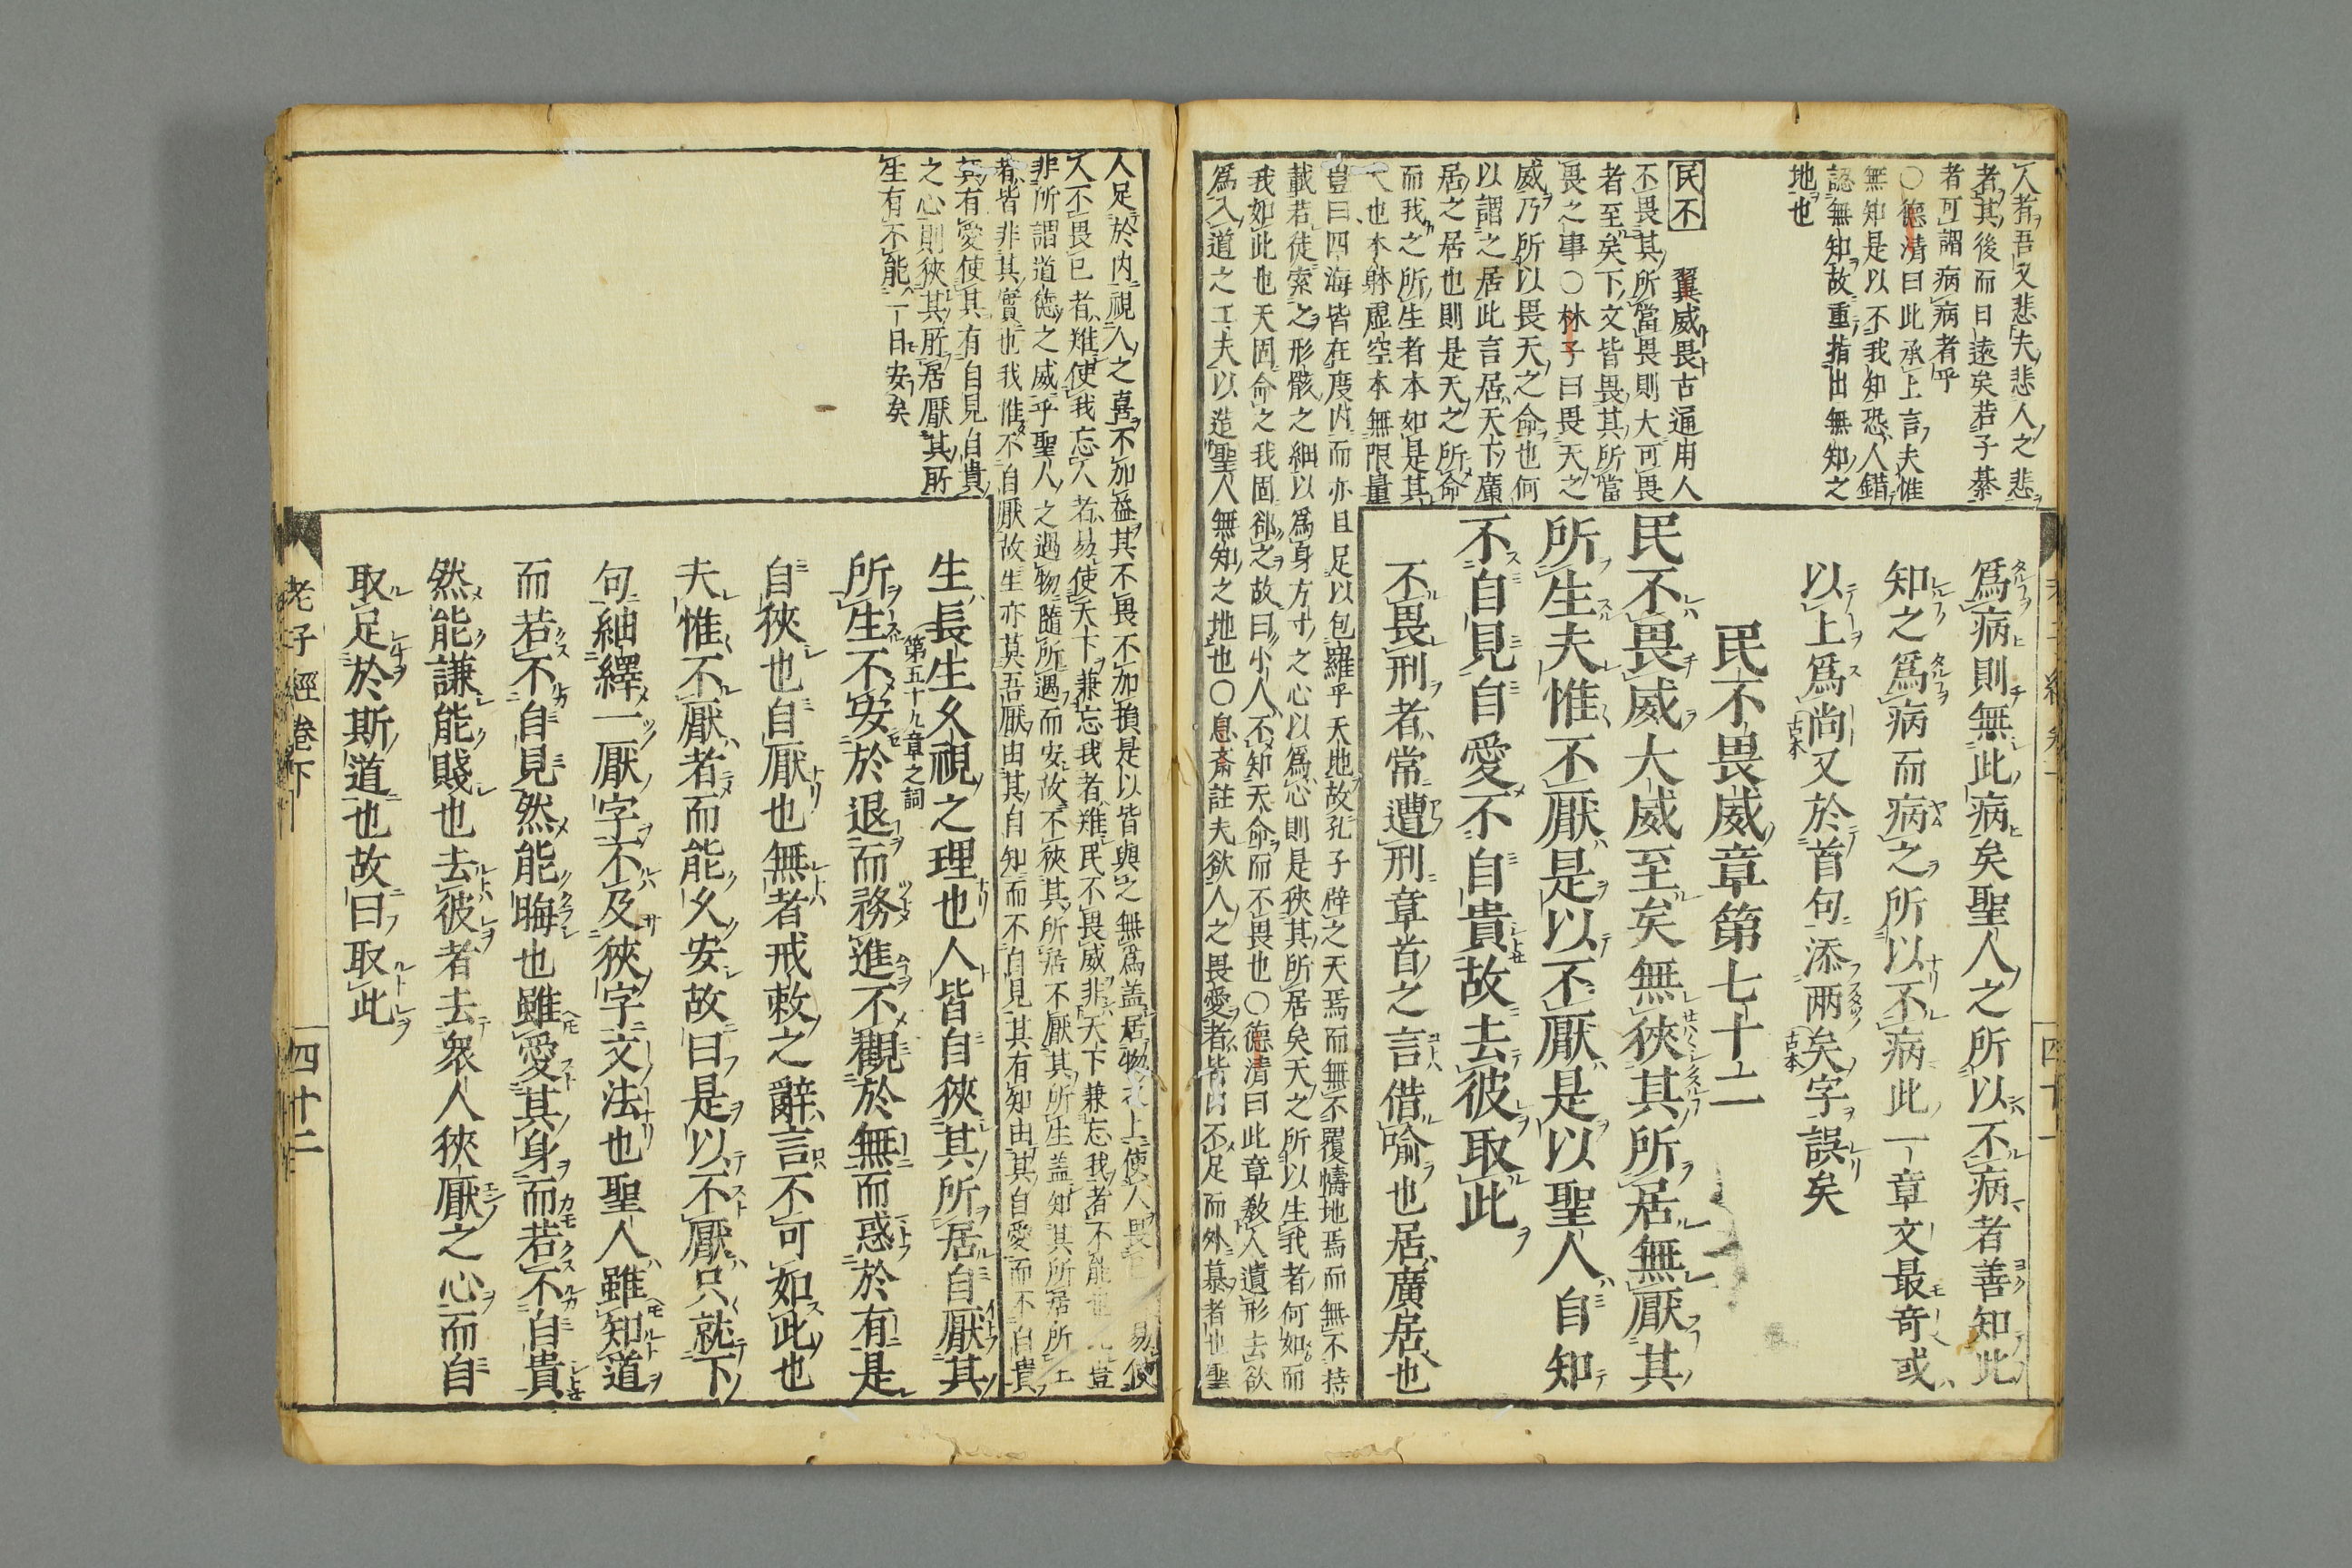 人者吾又悲夫悲人之悲
者其後而日遠矣若子綦
者可謂病病者乎
〇德清曰此承上言夫惟
無知是以不我知恐人錯
認無知故重指出無知之
地也
民不 翼威畏古通用人
不畏其所當畏則大可畏
者至矣下文皆畏其所當
畏之事〇林子曰畏天之
威乃所以畏天之命也何
以謂之居此言居天下廣
居之居也則是天之所命
而我之所生者本如是其
大也本躰虛空本無限量
豈曰四海皆在度内而亦且足以包羅乎天地故孔子辟之天焉而無不覆幬地焉而無不持
載若徒索之形骸之細以爲身方寸之心以爲心則是狹其所居矣天之所以生我者何如而
我如此也天固命之我固郤之故曰小人不知天命而不畏也〇德清曰此章敎人遺形去欲
爲入道之工夫以造聖人無知之地也〇息斎註夫欲人之畏愛者皆内不足而外慕者也聖
爲病則無此病矣聖人之所以不病者善知此
知之爲病而病之所以不病此一章文最奇或
以上爲尚又於首句添两矣字誤矣
古本
古本
民不畏威章第七十二
民不畏威大威至矣無狹其所居無厭其
所生夫惟不厭是以不厭是以聖人自知
不自見自愛不自貴故去彼取此
不畏刑者常遭刑章首之言借喩也居廣居也
人足於内視人之喜不加益其不畏不加損是以皆與之無爲盖居物之上使人畏
人不畏已者難使我忘人者易使天下兼忘我者難民不畏威非天下兼忘我者不能也
非所謂道德之威乎聖人之遇物隨所遇而安故不狹其所居不厭其所生盖知其所居所生
者皆非其實也我惟不自厭故生亦莫吾厭由其自知而不自見其有知由其自愛而不自貴
其有愛使其有自見自貴
之心則狹其所居厭其所
生有不能一日安矣
生長生久視之理也人皆自狹其所居自厭其
第五十九章之詞
所生不安於退而務進不觀於無而惑於有是
自狹也自厭也無者戒敕之辭言不可如此也
夫惟不厭者而能久安故曰是以不厭只就下
句紬繹一厭字不及狹字文法也聖人雖知道
而若不自見然能晦也雖愛其身而若不自貴
然能謙能賤也去彼者去衆人狹厭之心而自
取足於斯道也故曰取此
老子經卷下
四十二